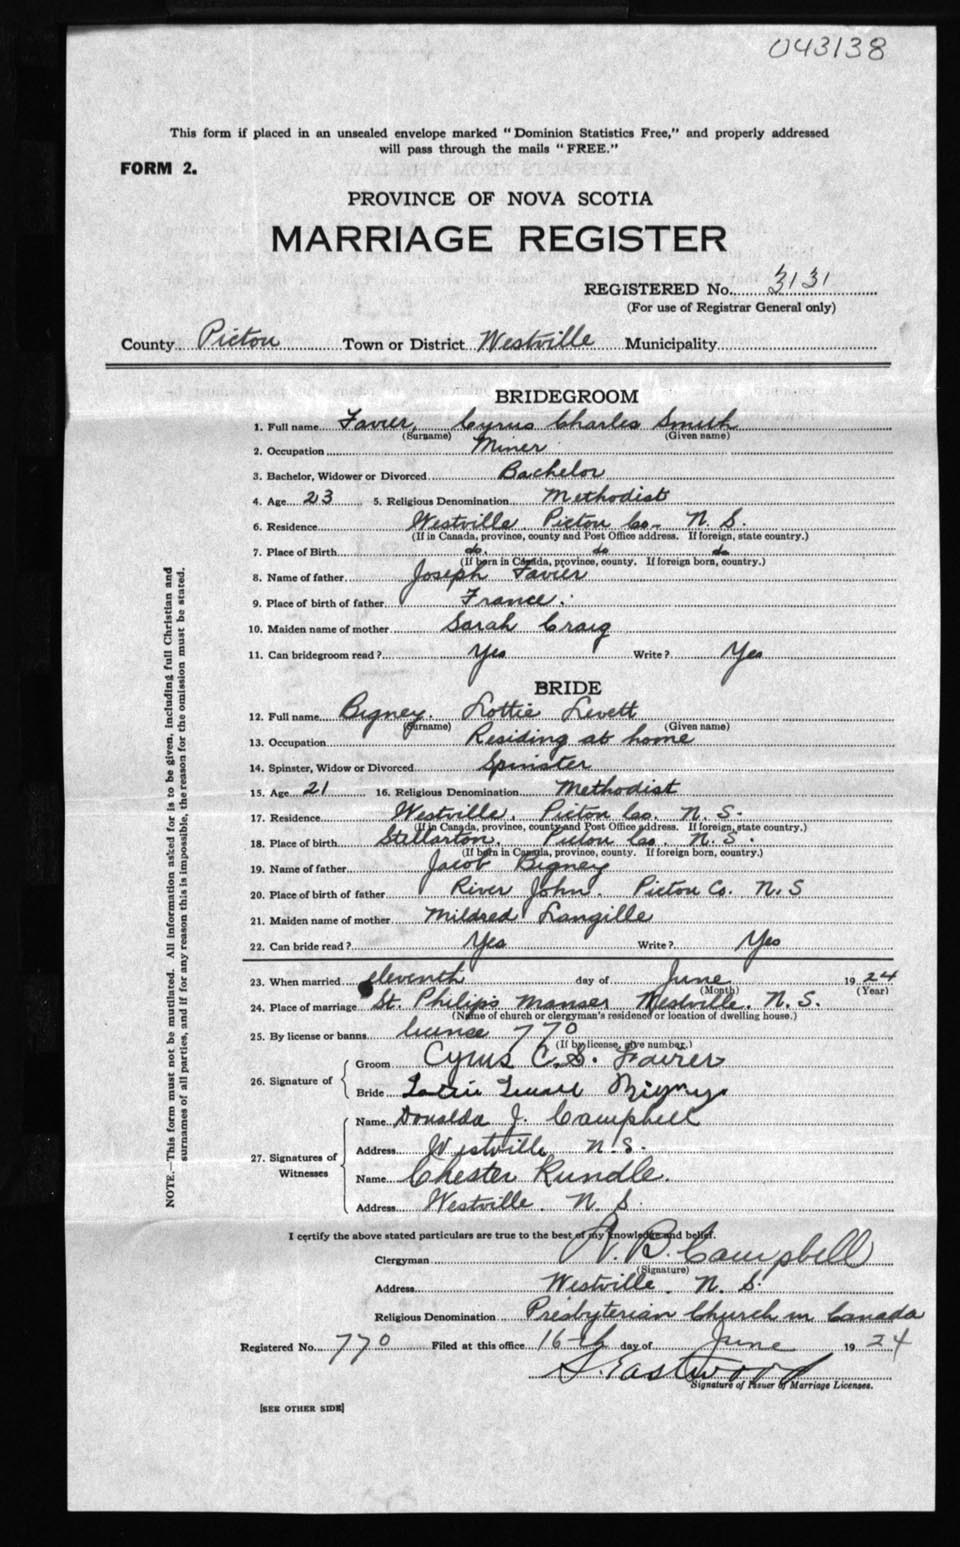 043138
This form if placed in an unsealed envelope marked "Dominion Statistics Free," and properly addressed
will pass through the mails "FREE."
FORM 2.
PROVINCE OF NOVA SCOTIA
MARRIAGE REGISTER
REGISTERED No. 3131
(For use of Registrar General only)
County Pictou Town or District Westville Municipality
BRIDEGROOM
1. Full name Favier, Cyrus Charles Smith
(Surname) (Given name)
2. Occupation Miner
3. Bachelor, Widower or Divorced Bachelor
4. Age 23 5. Religious Denomination Methodist
6. Residence Westville Pictou Co. N. S.
(If in Canada, province, county and Post Office address. If foreign, state country.)
7. Place of Birth do. do do
(If born in Canada, province, county. If foreign born, country.)
8. Name of father Joseph Favier
9. Place of birth of father France.
10. Maiden name of mother Sarah Craig
11. Can bridegroom read? Yes Write? Yes
BRIDE
12. Full name Bigney. Lottie Levett
(Surname) (Given name)
13. Occupation Residing at home
14. Spinster, Widow or Divorced Spinster
15. Age 21 16. Religious Denomination Methodist
17. Residence Westville, Pictou Co. N. S.
(If in Canada, province, county and Post Office address. If foreign, state country.)
18. Place of birth Stellarton, Pictou Co. N. S.
(If born in Canada, province, county. If foreign born, country.)
19. Name of father Jacob Bigney
20. Place of birth of father River John. Pictou Co. N. S
21. Maiden name of mother Mildred Langille
22. Can bride read? Yes Write? Yes
23. When married eleventh day of June 1924
(Month) (Year)
24. Place of marriage St. Philips manser Westville. N. S.
(Name of church or clergyman's residence or location of dwelling house.)
25. By license or banns license 770
(If by license, give number.)
26. Signature of
Groom Cyrus C. S. Favier
Bride Bigney
27. Signatures of Witnesses
Name Donalda J. Campbell
Address Westville N. S.
Name Chester Rundle.
Address Westville. N. S.
I certify the above stated particulars are true to the best of my knowledge and belief.
Clergyman A. B. Campbell
(Signature)
Address Westville. N. S.
Religious Denomination Presbyterian Church in Canada
Registered No. 770 Filed at this office 16th day of June 1924
S. Eastwood
Signature of Issuer of Marriage Licenses.
[SEE OTHER SIDE]
NOTE.—This form must not be mutilated. All information asked for is to be given, including full Christian and
surnames of all parties, and if for any reason this is impossible, the reason for the omission must be stated.